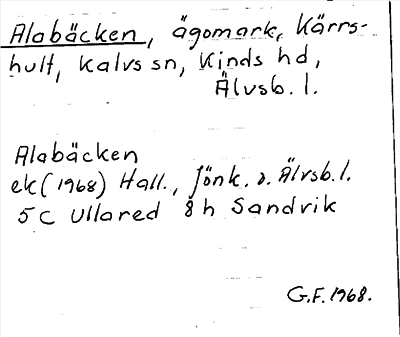 Alabäcken, ägomark, Kärrs-
hult, Kalvs sn, Kinds hd,
Älvsb. l.
Alabäcken
ek (1968) Hall., Jönk. o. Älvsb. l.
5 C Ullared 8 h Sandvik
G.F. 1968.